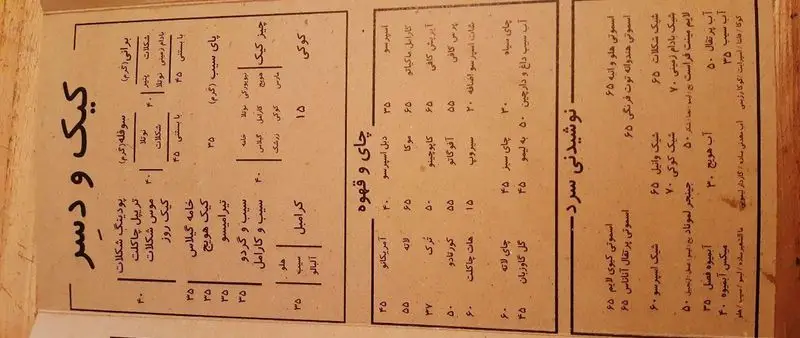 کیک و دسر
کوکی ۱۵
چیز کیک
نیویورکی هویج مارس
نوتلا کارامل کوکی
خامه گیلاس زرشک
۴۰
کرامبل
سیب هلو
آلبالو
۳۵
پای سیب (گرم) ۳۵
خامه گیلاس ۳۵
کیک هویج ۳۵
تیرامیسو ۳۵
سیب و گردو ۳۵
سیب و کارامل
براونی (گرم)
شکلات پنیر
بادام زمینی نوتلا
۴۰
با بستنی ۴۵
سوفله (گرم)
نوتلا
شکلات
۴۰
با بستنی ۴۵
پودینگ شکلات
تریپل چاکلت
موس شکلات
کیک روز
۴۰
چای و قهوه
اسپرسو ۳۵
دبل اسپرسو ۴۰
آمریکانو ۴۵
کارامل ماکیاتو ۶۵
موکا ۶۵
لاته ۵۵
آیریش کافی ۶۵
کاپوچینو ۵۰
تُرک ۳۷
پرس کافی ۵۵
آفوگاتو ۵۵
کورتادو ۵۰
شات اسپرسو اضافه ۲۰
سیروپ ۱۵
هات چاکلت ۶۰
چای سیاه ۳۰
چای سبز ۴۵
چای لاته ۶۰
آب سیب داغ و دارچین ۵۰
به لیمو ۴۵
گل گاوزبان ۴۵
نوشیدنی سرد
اسموتی هلو و انبه ۶۵
اسموتی کیوی لایم ۶۵
اسموتی هندوانه توت فرنگی ۶۵
اسموتی پرتقال آناناس ۶۵
شیک شکلات ۶۵
شیک وانیل ۶۵
شیک اسپرسو ۶۰
شیک بادام زمینی ۷۰
شیک کوکی ۷۰
لایم مینت فراست ۵۰
جینجر لیموناد ۵۰
آب پرتقال ۵۰
آب هویج ۳۰
آبمیوه فصل ۳۵
آب سیب ۳۵
میکس آبمیوه ۴۰